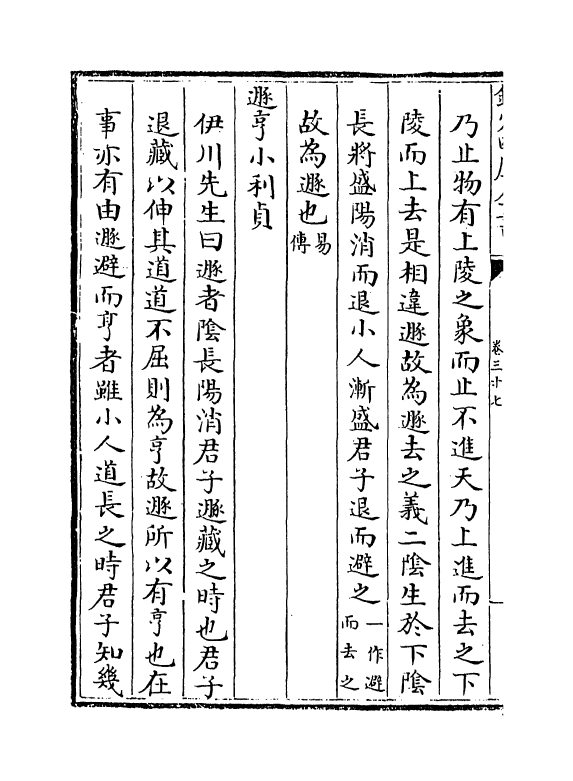 乃止物有上陵之象而止不進天乃上進而去之下
陵而上去是相違遯故為遯去之義二陰生於下陰
長將盛陽消而退小人漸盛君子退而避之一作避而去之
故為遯也易傳
遯亨小利貞
伊川先生曰遯者陰長陽消君子遯藏之時也君子
退藏以伸其道道不屈則為亨故遯所以有亨也在
事亦有由遯避而亨者雖小人道長之時君子知幾
卷三十七